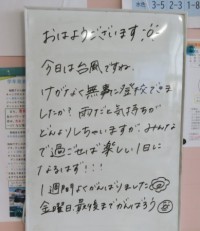 水色 3-5 2-3 1-8
おはようございます
今日は台風ですね。
けがなく無事に登校できま
したか？雨だと気持ちが
どんよりしちゃいますが、みんな
で過ごせば楽しい1日に
なるはず!!!
1週間よくがんばりました
金曜日最後までがんばろう